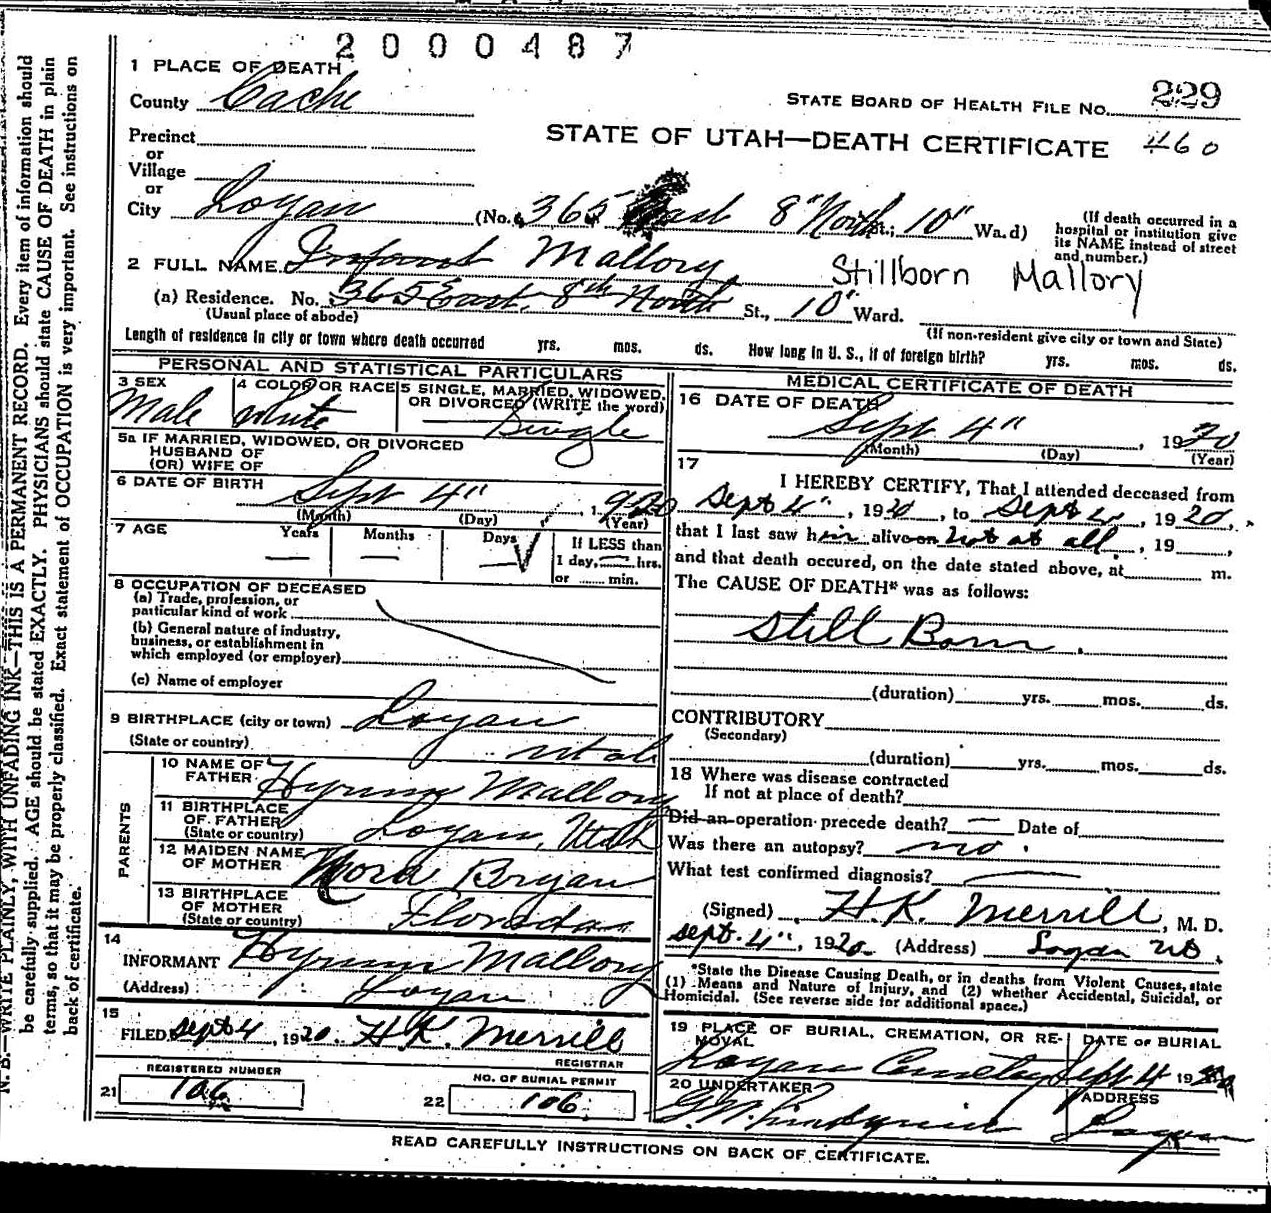 2000487
1 PLACE OF DEATH
County Cache
STATE BOARD OF HEALTH FILE No. 229
Precinct
or
STATE OF UTAH—DEATH CERTIFICATE 460
Village
or
City Logan (No. 365 East 8" North St.; 10" Ward)
(If death occurred in a hospital or institution give its NAME instead of street and number.)
2 FULL NAME Infant Mallory Stillborn Mallory
(a) Residence. No. 365 East 8th North St., 10" Ward.
(Usual place of abode)
(If non-resident give city or town and State)
Length of residence in city or town where death occurred yrs. mos. ds. How long in U. S., if of foreign birth? yrs. mos. ds.
PERSONAL AND STATISTICAL PARTICULARS
3 SEX
Male
4 COLOR OR RACE
White
5 SINGLE, MARRIED, WIDOWED, OR DIVORCED (WRITE the word)
Single
5a IF MARRIED, WIDOWED, OR DIVORCED
HUSBAND OF
(OR) WIFE OF
6 DATE OF BIRTH
Sept 4" 1920
(Month) (Day) (Year)
7 AGE Years Months Days
If LESS than
1 day, hrs.
or min.
8 OCCUPATION OF DECEASED
(a) Trade, profession, or
particular kind of work
(b) General nature of industry,
business, or establishment in
which employed (or employer)
(c) Name of employer
9 BIRTHPLACE (city or town) Logan
(State or country) Utah
PARENTS
10 NAME OF
FATHER Hyrum Mallory
11 BIRTHPLACE
OF FATHER
(State or country) Logan, Utah
12 MAIDEN NAME
OF MOTHER Nora Bryan
13 BIRTHPLACE
OF MOTHER
(State or country) Florida
14
INFORMANT Hyrum Mallory
(Address) Logan
15
FILED Sept 4, 1920 H.K. Merrill
REGISTRAR
REGISTERED NUMBER
21 106
NO. OF BURIAL PERMIT
22 106
MEDICAL CERTIFICATE OF DEATH
16 DATE OF DEATH
Sept 4", 1920
(Month) (Day) (Year)
17
I HEREBY CERTIFY, That I attended deceased from
Sept 4", 1920, to Sept 4, 1920,
that I last saw him alive on not at all, 19
and that death occured, on the date stated above, at m.
The CAUSE OF DEATH* was as follows:
Still Born.
(duration) yrs. mos. ds.
CONTRIBUTORY
(Secondary)
(duration) yrs. mos. ds.
18 Where was disease contracted
If not at place of death?
Did an operation precede death? — Date of
Was there an autopsy? no.
What test confirmed diagnosis? —
(Signed) H.K. Merrill, M. D.
Sept. 4", 1920 (Address) Logan Ut.
*State the Disease Causing Death, or in deaths from Violent Causes, state
(1) Means and Nature of Injury, and (2) whether Accidental, Suicidal, or
Homicidal. (See reverse side for additional space.)
19 PLACE OF BURIAL, CREMATION, OR RE-
MOVAL
Logan Cemetery
DATE OF BURIAL
Sept 4 1920
20 UNDERTAKER
ADDRESS
Logan
READ CAREFULLY INSTRUCTIONS ON BACK OF CERTIFICATE.
N. B.—WRITE PLAINLY, WITH UNFADING INK—THIS IS A PERMANENT RECORD. Every item of information should
be carefully supplied. AGE should be stated EXACTLY. PHYSICIANS should state CAUSE OF DEATH in plain
terms, so that it may be properly classified. Exact statement of OCCUPATION is very important. See instructions on
back of certificate.